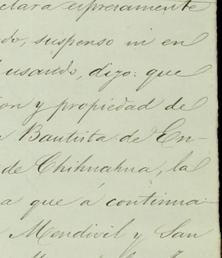 clara expresamente
do, suspenso ni en
usando, digo: que
ion y propiedad de
Bautista de En-
de Chihuahua, la
a que á continua-
Mendivil y San